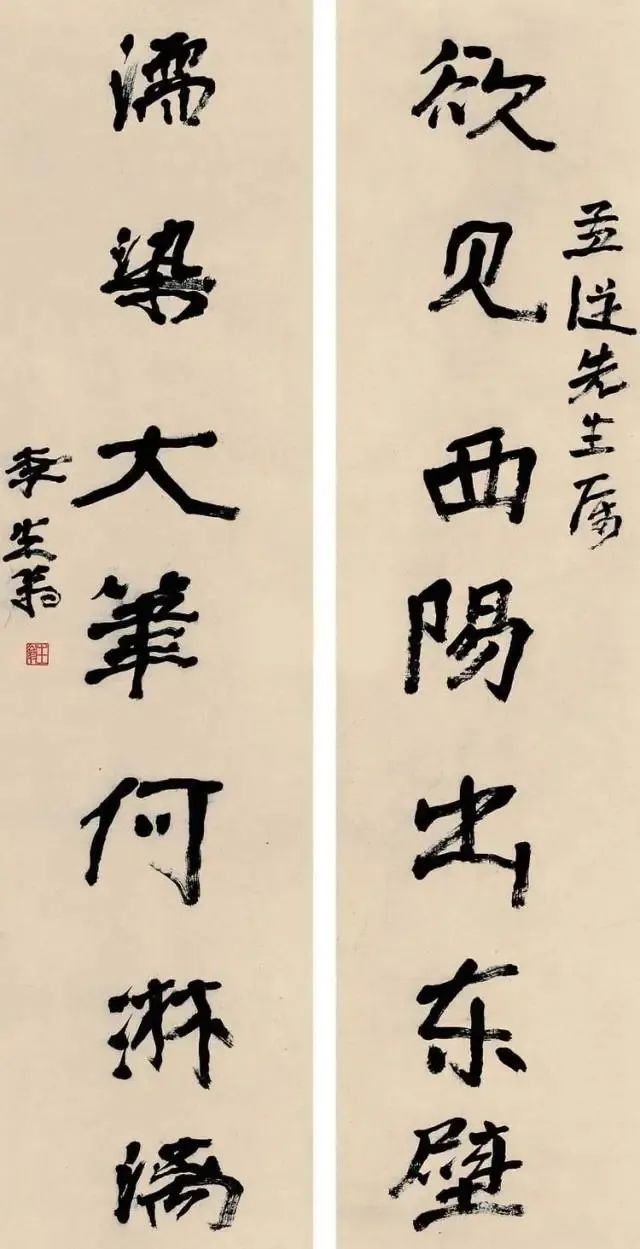 從先生属
欲见西陽出东壁
濡染大筆何淋漓
李生翁